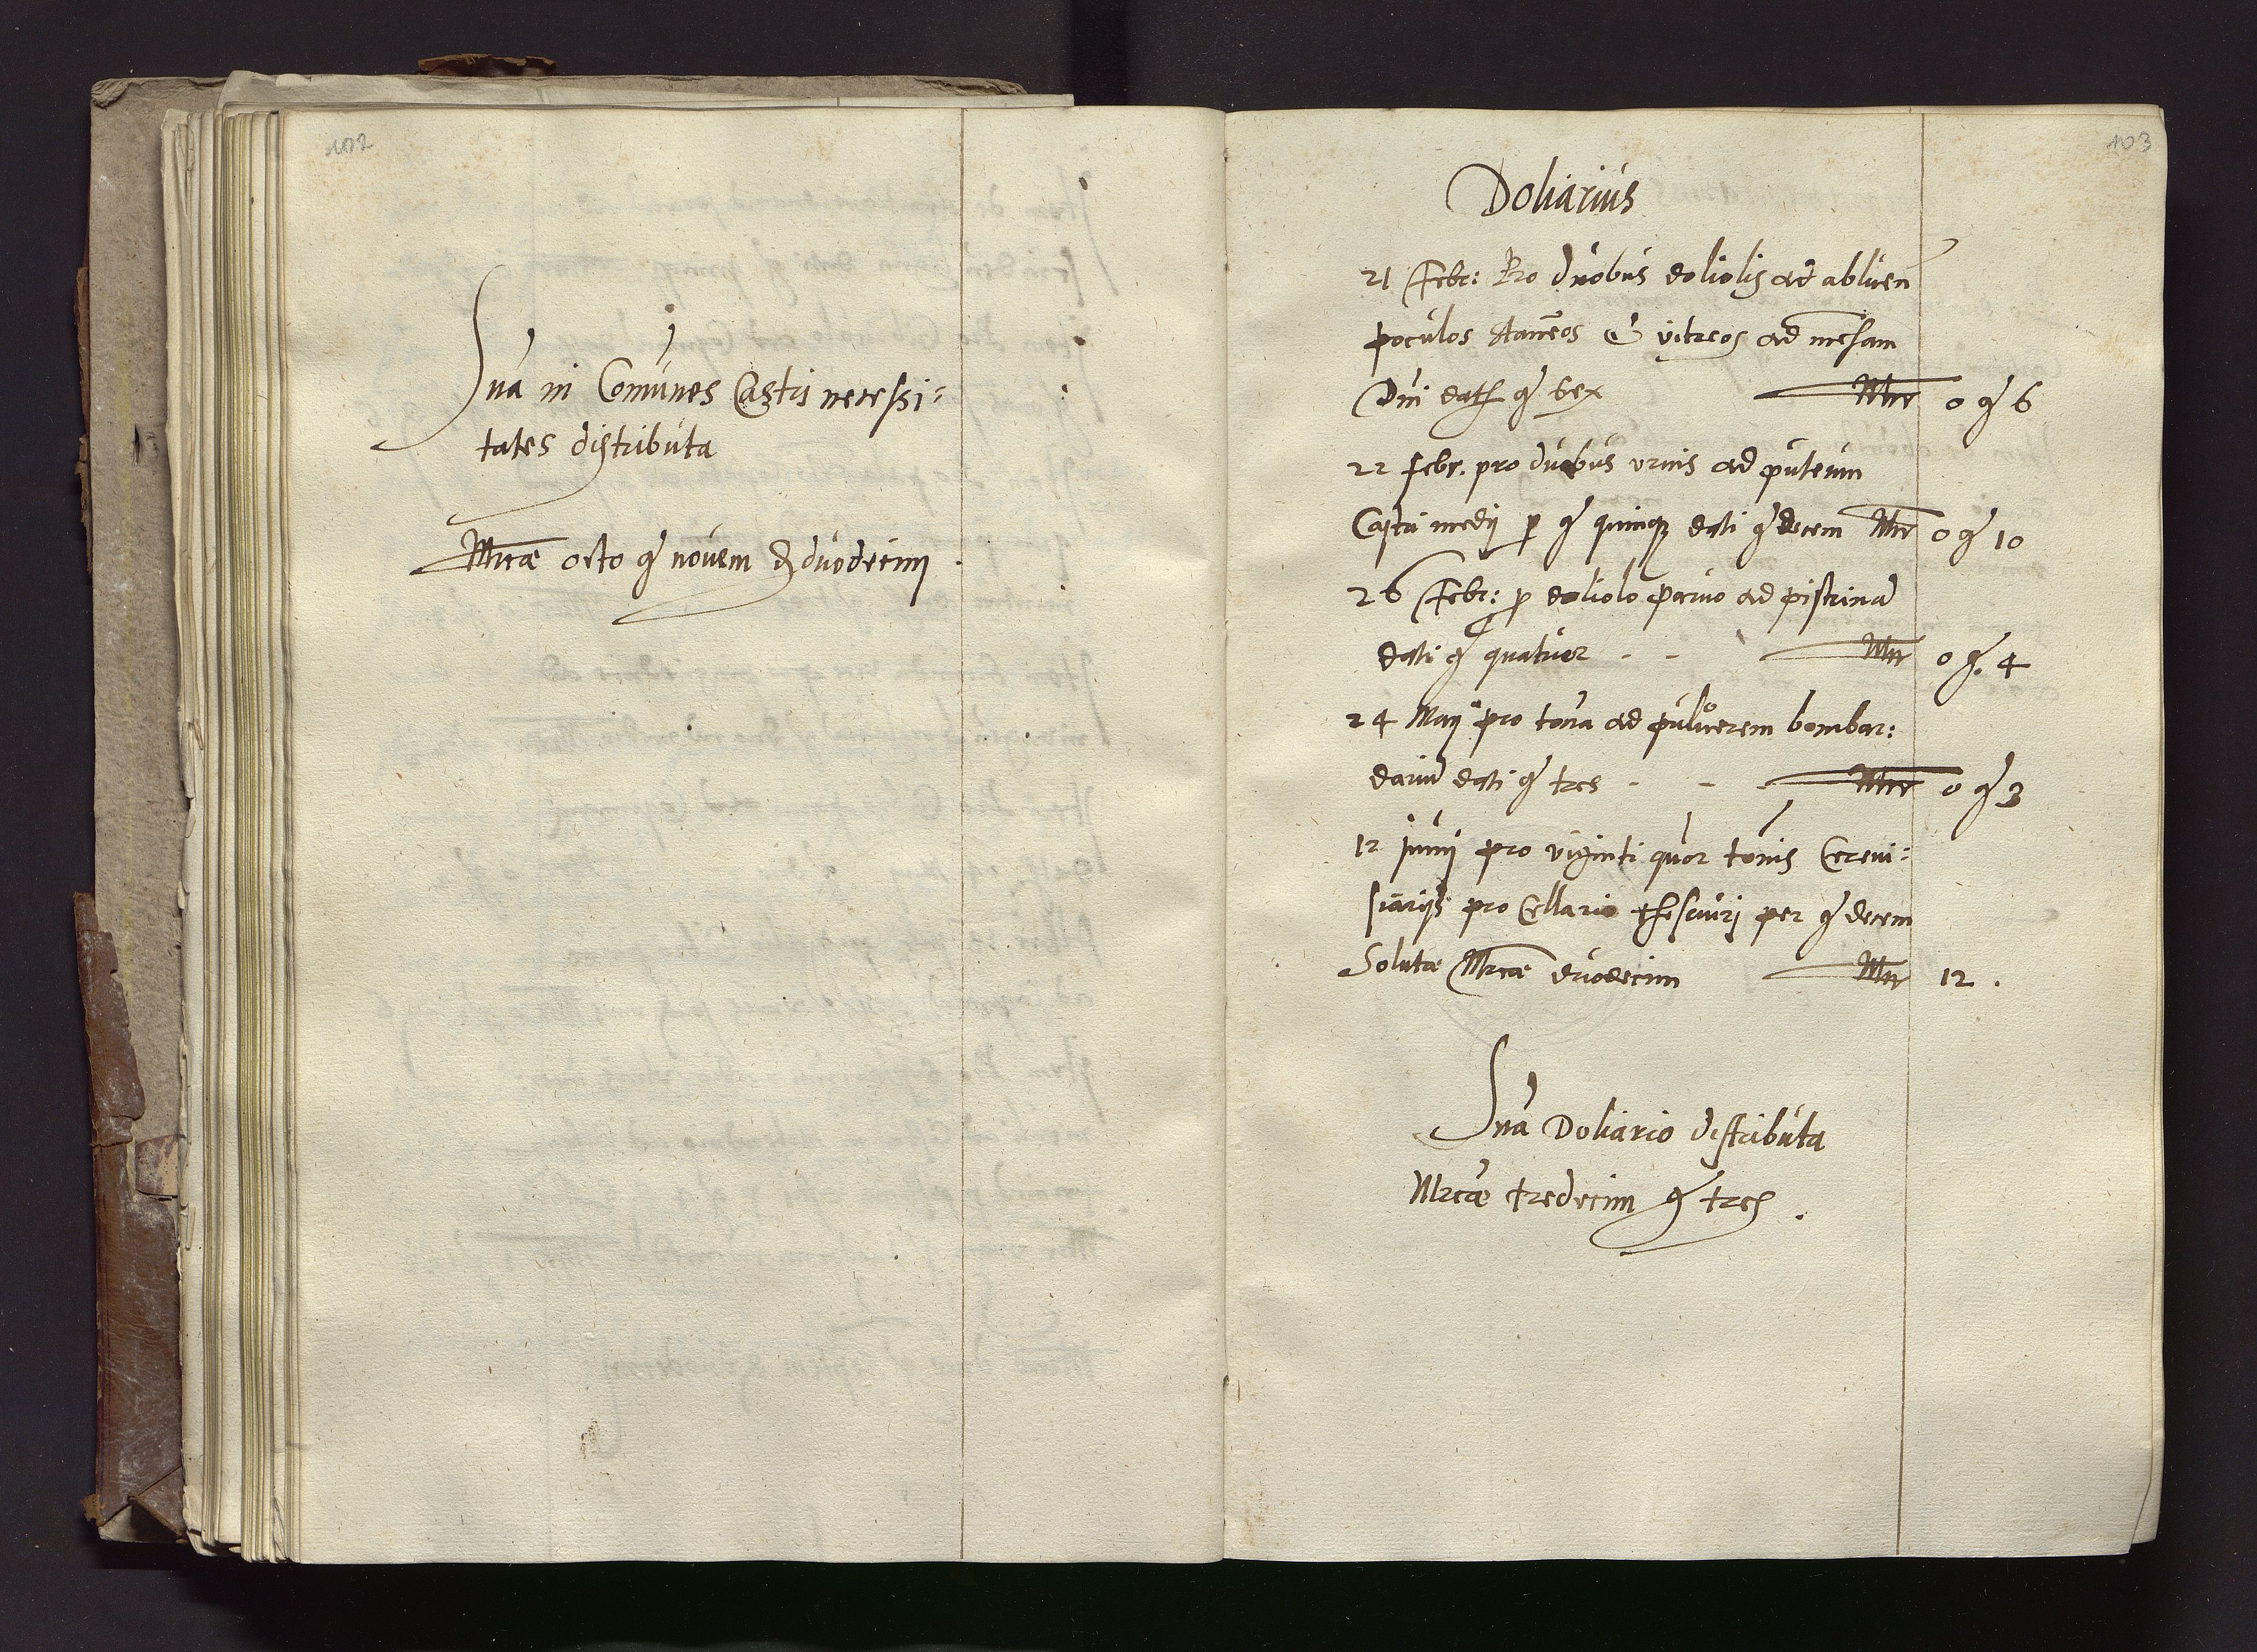 102
Sũa in Comũnes Castri necessi:
tates distributa
Mrcæ octo gʒ novem ₰ duodecim .
103
Doliarius
21 Febr: Pro duobus doliolis ad abluen̄
poculos stanneos & vitreos ad mensam
Dn̄i dati gʒ sex Mrc 0 gʒ 6
22 febr. pro duobus urnis ad puteum
Castri medij p gʒ quinqʒ dati gʒ decem Mrc 0 gʒ 10
26 Febr: p doliolo parvo ad pistrinā
dati gʒ quatuor - - Mrc 0 gʒ. 4
24 Maij pro tona ad pulverem bombar:
dariū dati gʒ tres - - Mrc 0 gʒ 3
12 junij pro viginti quor tonis Cerevi:
siarijs pro Cellario thesauri per gʒ decem
Solutæ Mrcæ duodecim Mrc 12 .
Sũa Doliario distributa
Mrcæ tredecim gʒ tres .